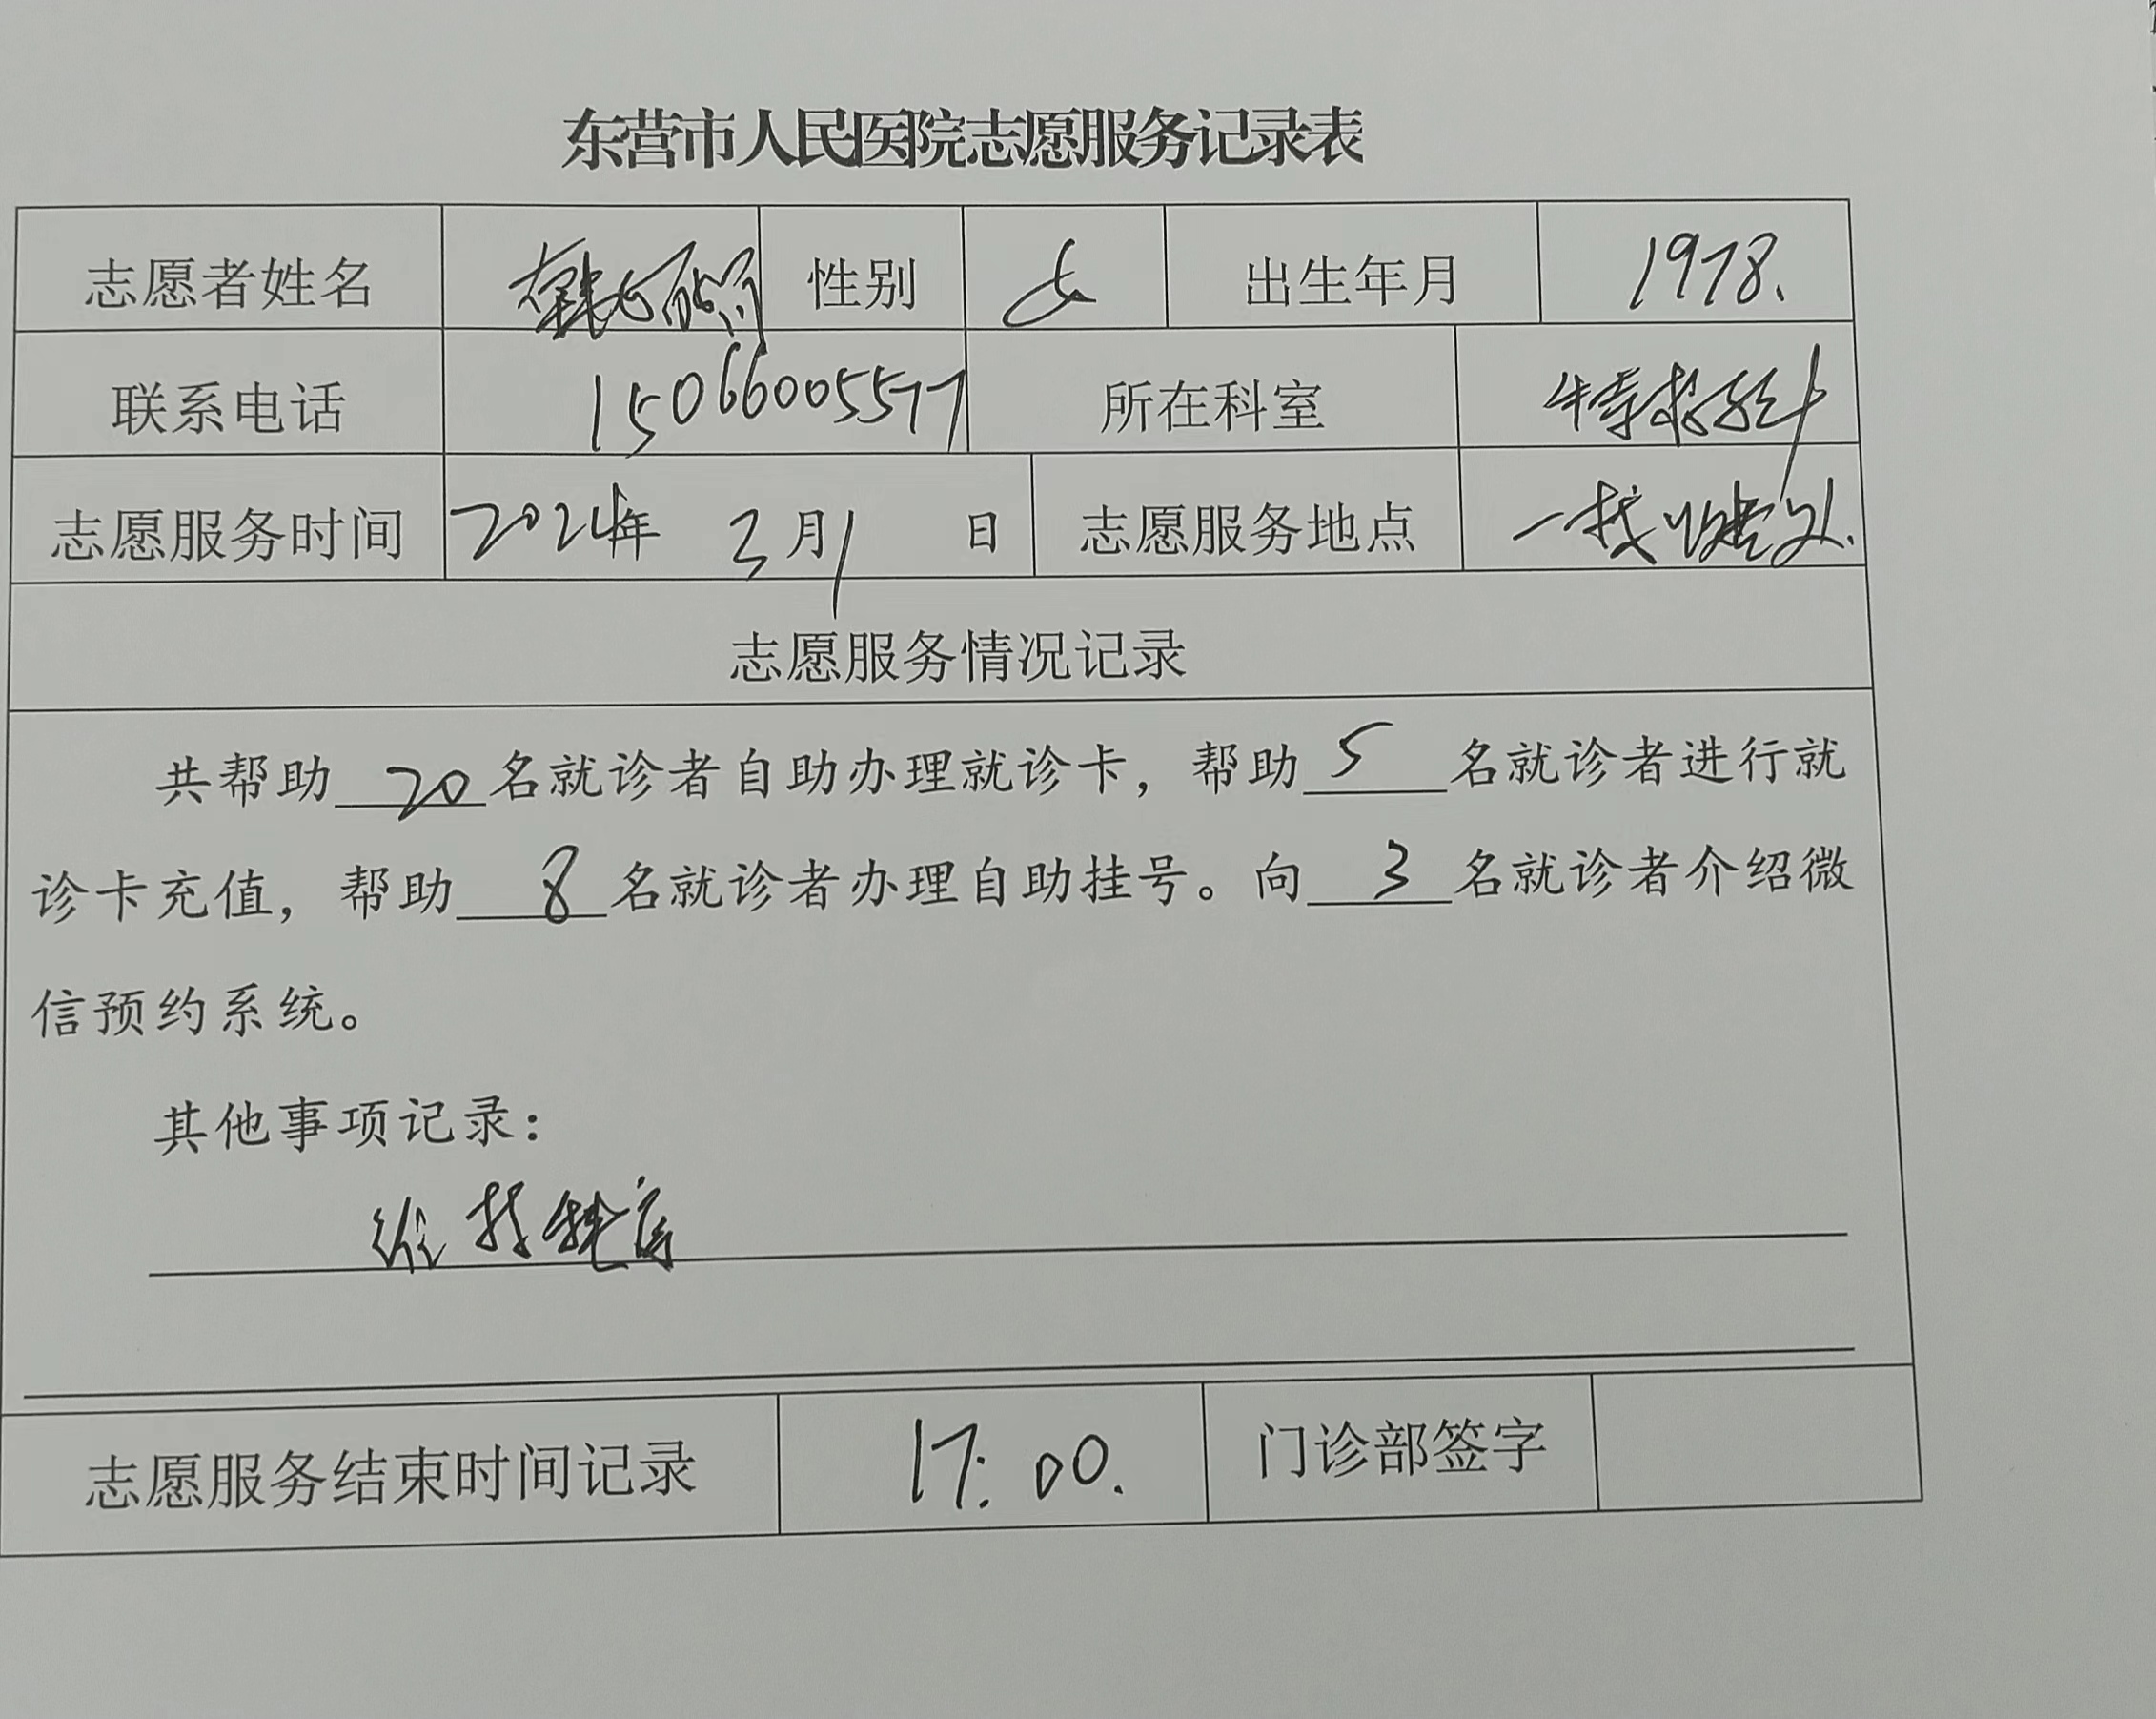 东营市人民医院志愿服务记录表
志愿者姓名 性别 女 出生年月 1978.
联系电话 15066005577 所在科室
志愿服务时间 2024年 3月1日 志愿服务地点
志愿服务情况记录
共帮助 20 名就诊者自助办理就诊卡，帮助 5 名就诊者进行就
诊卡充值，帮助 8 名就诊者办理自助挂号。向 3 名就诊者介绍微
信预约系统。
其他事项记录：
维持秩序
志愿服务结束时间记录 17:00. 门诊部签字